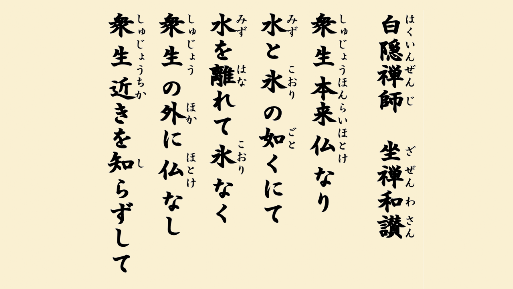 白隠禅師　坐禅和讃
衆生本来仏なり
水と氷の如くにて
水を離れて氷なく
衆生の外に仏なし
衆生近きを知らずして